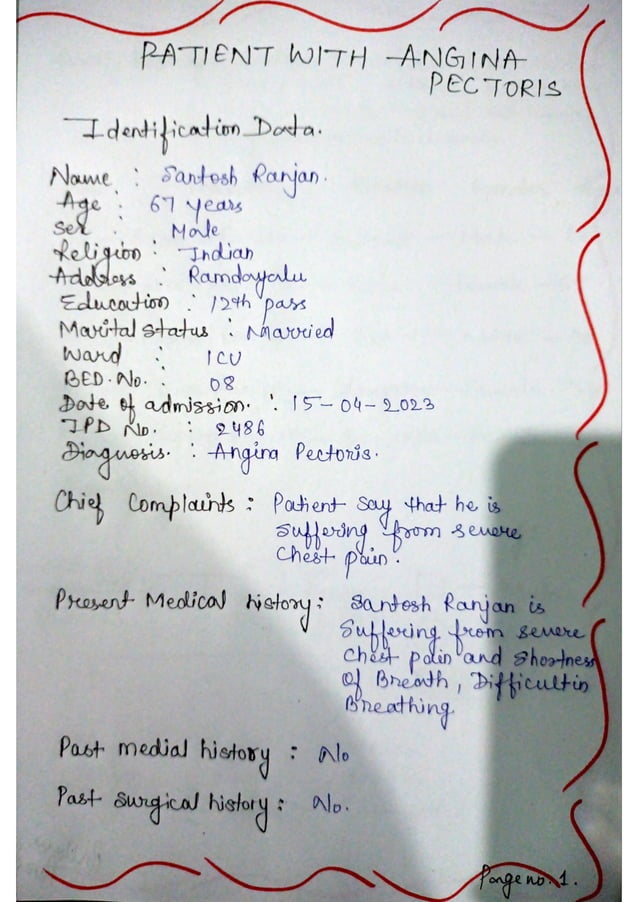 PATIENT WITH ANGINA
PECTORIS
Identification Data.
Name : Santosh Ranjan.
Age : 67 years
Sex : Male
Religion : Indian
Address : Ramdayalu
Education : 12th pass
Marital Status : Married
Ward : ICU
BED. No. : 08
Date of admission. : 15-04-2023
IPD No. : 2486
Diagnosis. : Angina Pectoris.
Chief Complaints : Patient say that he is
suffering from severe
Chest pain.
Present Medical history : Santosh Ranjan is
Suffering from severe
Chest pain and Shortness
Of Breath, Difficultin
Breathing
Past medial history : No
Past Surgical history : No.
Page no. 1.